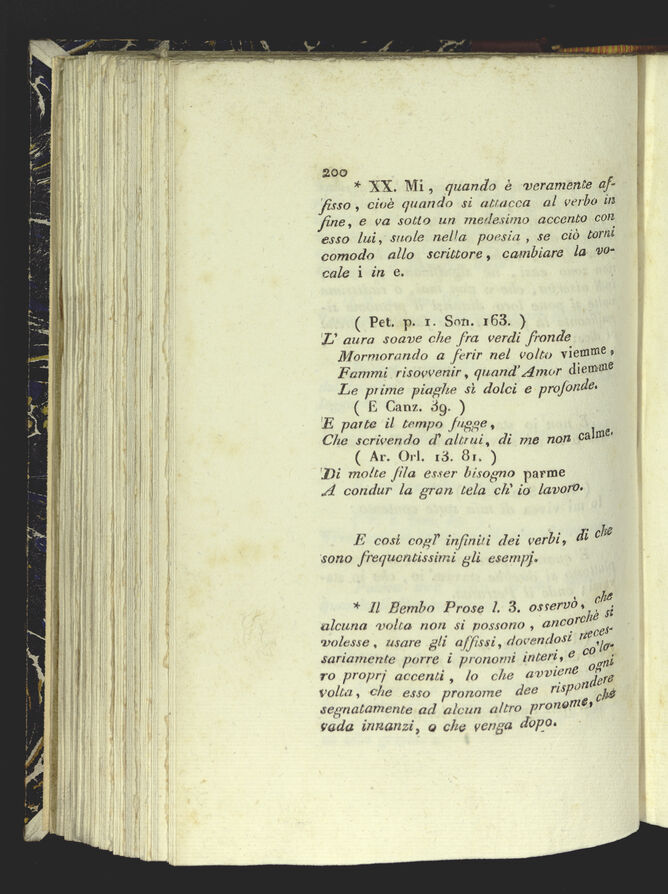 200
* XX. Mi, quando è veramente af-
fisso, cioè quando si attacca al verbo in
fine, e va sotto un medesimo accento con
esso lui, suole nella poesia, se ciò torni
comodo allo scrittore, cambiare la vo-
cale i in e.
( Pet. p. 1. Son. 163. )
L' aura soave che fra verdi fronde
Mormorando a ferir nel volto viemme,
Fammi risovvenir, quand' Amor diemme
Le prime piaghe sì dolci e profonde.
( E Canz. 39. )
E parte il tempo fugge,
Che scrivendo d' altrui, di me non calme.
( Ar. Orl. 13. 81. )
Di molte fila esser bisogno parme
A condur la gran tela ch' io lavoro.
E così cogl' infiniti dei verbi, di che
sono frequentissimi gli esempj.
* Il Bembo Prose l. 3. osservò, che
alcuna volta non si possono, ancorchè si
volesse, usare gli affissi, dovendosi neces-
sariamente porre i pronomi interi, e co' lo-
ro proprj accenti, lo che avviene ogni
volta, che esso pronome dee rispondere
segnatamente ad alcun altro pronome, che
vada innanzi, o che venga dopo.